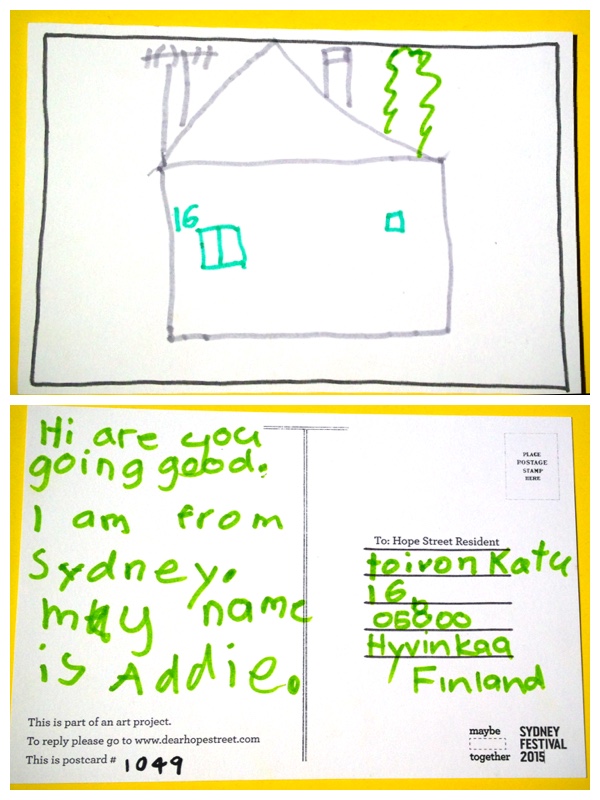 16
Hi are you
going good.
I am from
Sydney.
my name
is Addie.
This is part of an art project.
To reply please go to www.dearhopestreet.com
This is postcard # 1049
PLACE
POSTAGE
STAMP
HERE
To: Hope Street Resident
toivon Katu
16
05800
Hyvinkaa
Finland
maybe
together
SYDNEY
FESTIVAL
2015